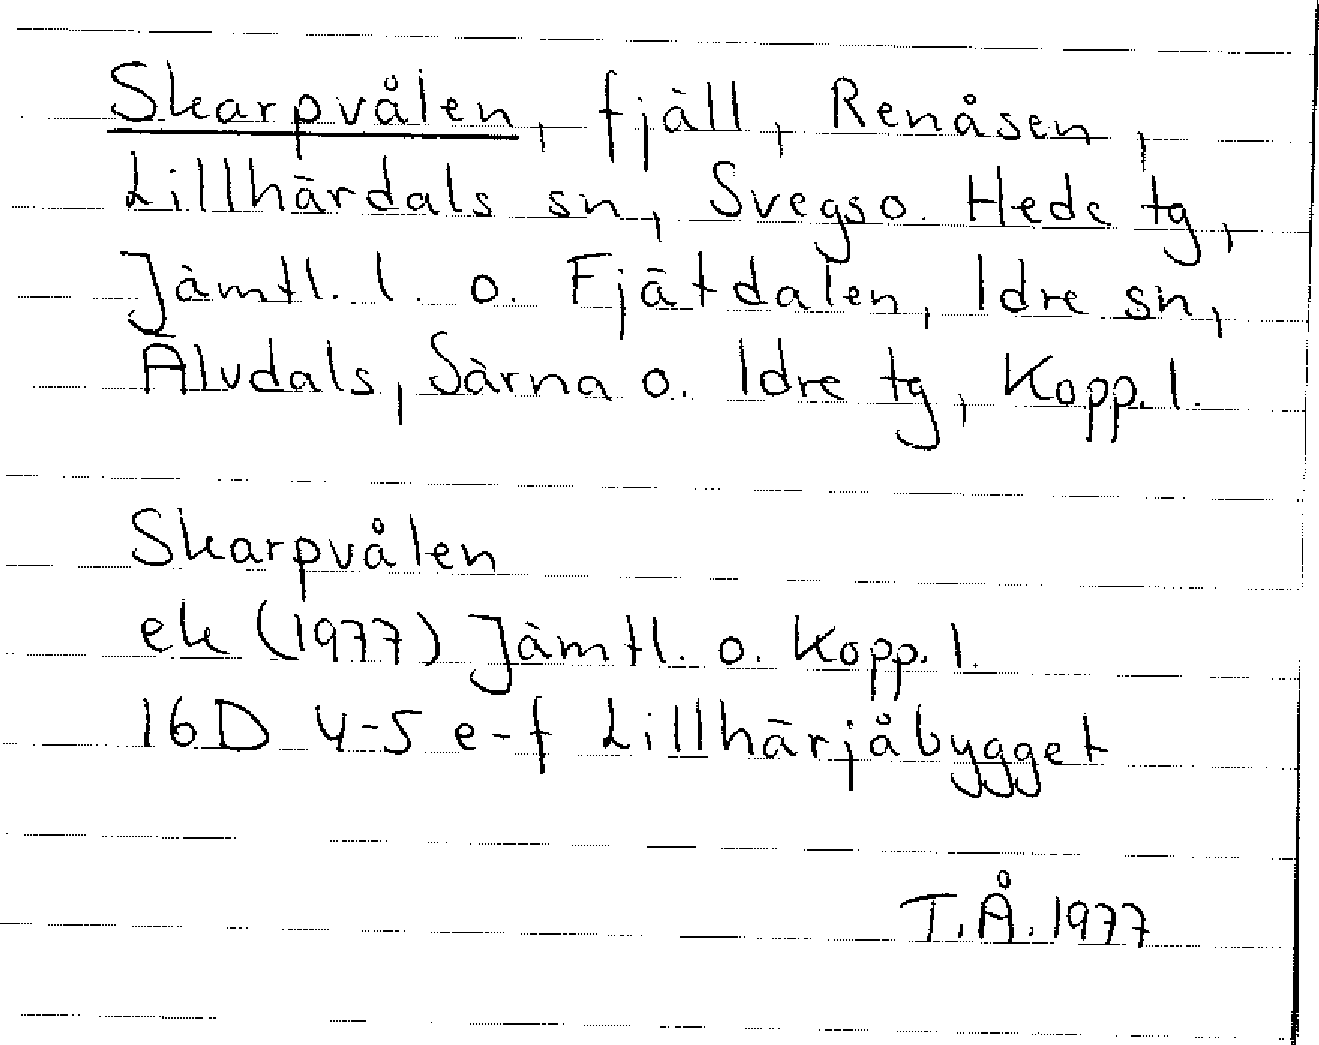 Skarpvålen, fjäll, Renåsen,
Lillhärdals sn, Svegs o. Hede tg,
Jämtl. l. o. Fjätdalen, Idre sn,
Älvdals, Särna o. Idre tg, Kopp. l.
Skarpvålen
ek (1977) Jämtl. o. Kopp. l.
16D 4-5 e-f Lillhärjåbygget
T.Å. 1977